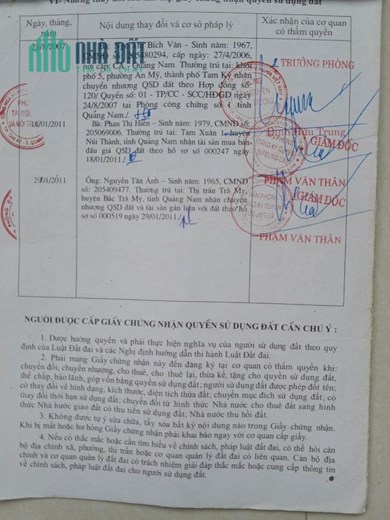 Ngày, tháng, năm
Nội dung thay đổi và cơ sở pháp lý
Xác nhận của cơ quan có thẩm quyền
NHÀ ĐẤT
Bích Vân - Sinh năm: 1967,
480294, cấp ngày: 27/4/2006,
nơi cấp CA Quảng Nam. Thường trú tại: khối
phố 5, phường An Mỹ, thành phố Tam Kỳ nhận
chuyển nhượng QSD đất theo Hợp đồng số:
120/ Quyển số: 01 - TP/CC - SCC/HĐGD ngày
24/8/2007 tại Phòng công chứng số 1 tỉnh
Quảng Nam./.
TRƯỞNG PHÒNG
Đinh Hữu Trung
18/01/2011
Bà: Phan Thị Hiền - Sinh năm: 1979, CMND
số: 205069006. Thường trú tại: Tam Xuân 1, huyện
Núi Thành, tỉnh Quảng Nam nhận tài sản mua bán
đấu giá QSD đất theo hồ sơ số 000247 ngày
18/01/2011./.
GIÁM ĐỐC
PHẠM VĂN THÂN
29/01/2011
Ông: Nguyễn Tấn Ánh - Sinh năm: 1965, CMND
số: 205409477. Thường trú tại: Thị trấn Trà My,
huyện Bắc Trà My, tỉnh Quảng Nam nhận chuyển
nhượng QSD đất và tài sản gắn liền với đất theo hồ
sơ số 000519 ngày 29/01/2011./.
GIÁM ĐỐC
PHẠM VĂN THÂN
NGƯỜI ĐƯỢC CẤP GIẤY CHỨNG NHẬN QUYỀN SỬ DỤNG ĐẤT CẦN CHÚ Ý :
1. Được hưởng quyền và phải thực hiện nghĩa vụ của người sử dụng đất theo quy
định của Luật Đất đai và các Nghị định hướng dẫn thi hành Luật Đất đai.
2. Phải mang Giấy chứng nhận này đến đăng ký tại cơ quan có thẩm quyền khi:
chuyển đổi, chuyển nhượng, cho thuê, cho thuê lại, thừa kế, tặng cho quyền sử dụng đất,
thế chấp, bảo lãnh, góp vốn bằng quyền sử dụng đất; người sử dụng đất được phép đổi tên;
có thay đổi về hình dạng, kích thước, diện tích thửa đất; chuyển mục đích sử dụng đất; có
thay đổi thời hạn sử dụng đất; chuyển đổi từ hình thức Nhà nước cho thuê đất sang hình
thức Nhà nước giao đất có thu tiền sử dụng đất; Nhà nước thu hồi đất.
3. Không được tự ý sửa chữa, tẩy xóa bất kỳ nội dung nào trong Giấy chứng nhận.
Khi bị mất hoặc hư hỏng Giấy chứng nhận phải khai báo ngay với cơ quan cấp giấy.
4. Nếu có thắc mắc hoặc cần tìm hiểu về chính sách, pháp luật đất đai, có thể hỏi cán
bộ địa chính xã, phường, thị trấn hoặc cơ quan quản lý đất đai có liên quan. Cán bộ địa
chính và cơ quan quản lý đất đai có trách nhiệm giải đáp thắc mắc hoặc cung cấp thông tin
về chính sách, pháp luật đất đai cho người sử dụng đất.